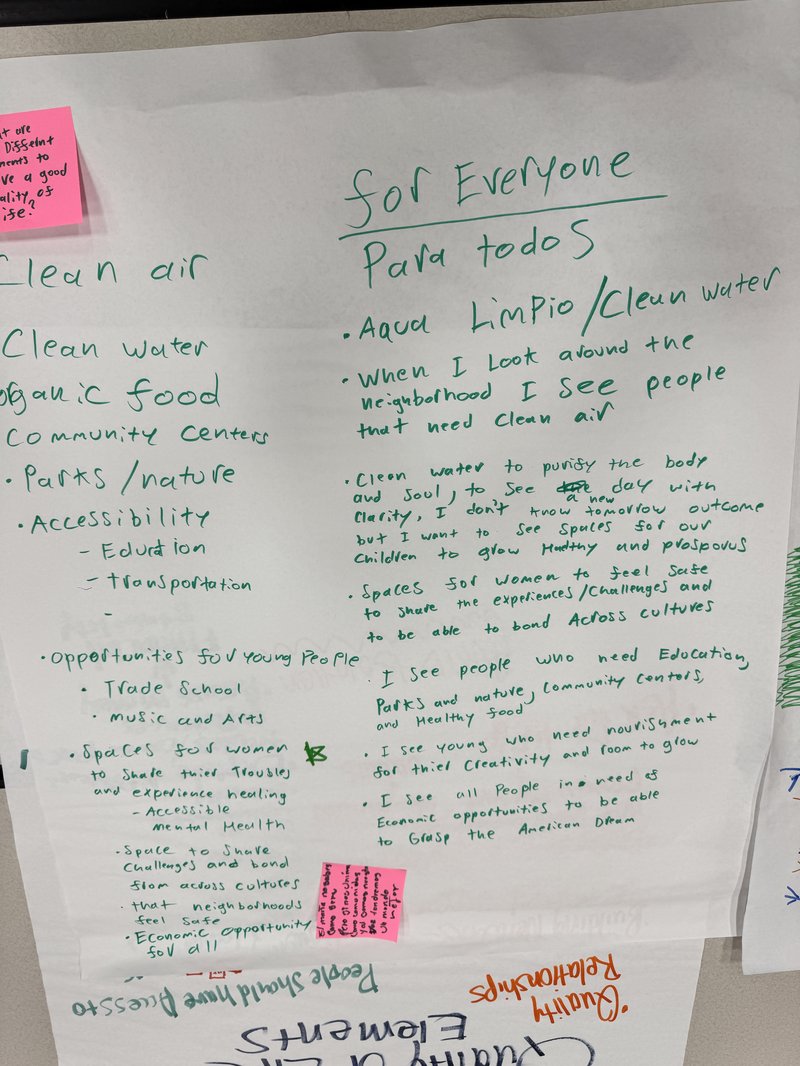 are
Different
to
a good
of
ife?
Clean air
Clean water
organic food
Community Centers
• Parks/nature
• Accessibility
- Eduction
- Transportation
-
• Opportunities for young People
• Trade School
• Music and Arts
• Spaces for women
to share thier Troubles
and experience healing
- Accessible
Mental Health
• Space to Share
Challenges and bond
from across cultures
• that neighborhoods
feel safe
• Economic opportunity
for all
for Everyone
Para todos
• Aqua Limpio/Clean water
• When I Look around the
neighborhood I see people
that need Clean air
• Clean water to purify the body
and soul, to see a new day with
Clarity, I don't know tomorrow outcome
but I want to see spaces for our
Children to grow Healthy and prosporus
• Spaces for women to feel safe
to share the experiences/Challenges and
to be able to bond Across cultures
• I see people who need Education,
Parks and nature, Community Centers,
and Healthy food
• I see young who need nourishment
for thier Creativity and room to grow
• I see all People in need of
Economic opportunities to be able
to Grasp the American Dream
mundo
mejor
People Should have Access to
• Quality
Relationships
Elements
Quality of Life